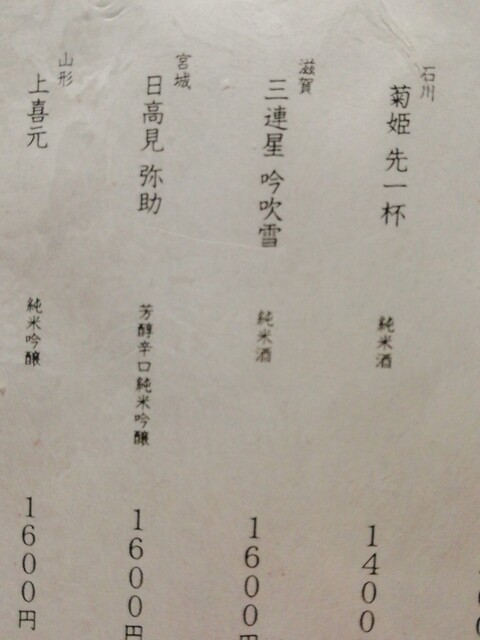 石川
菊姫 先一杯
純米酒
1400
滋賀
三連星 吟吹雪
純米酒
1600円
宮城
日高見 弥助
芳醇辛口純米吟醸
1600円
山形
上喜元
純米吟醸
1600円